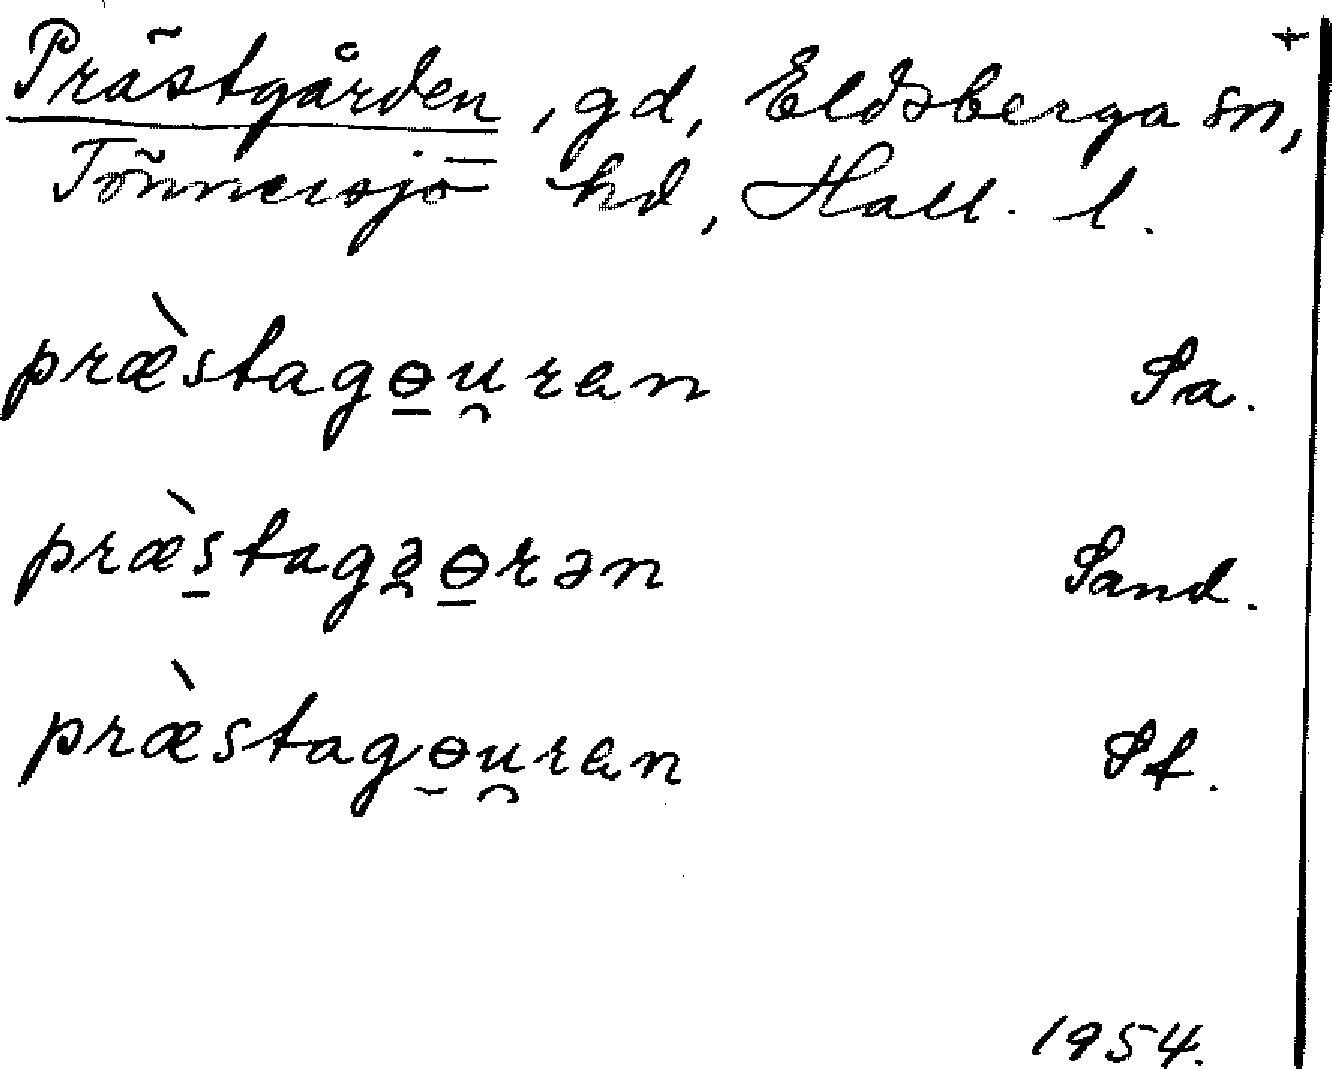 Prästgården, gd, Eldsberga sn, +
Tönnersjö hd, Hall. l.
præ̀stagɵ̱u̯ran Sa.
præ̀s̱tagə̯ɵ̱rən Sand.
præ̀stagɵ̱u̯ran St.
1954.